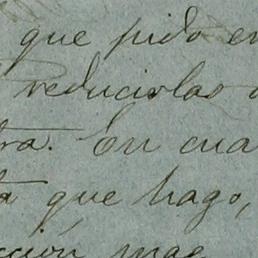 que pido en
reducirlas a
tra. En cua
ta que hago,
cción mas